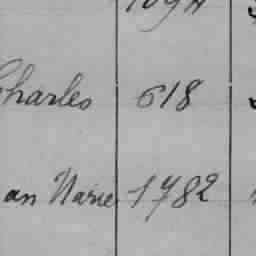 Charles 618
an Marie 1782